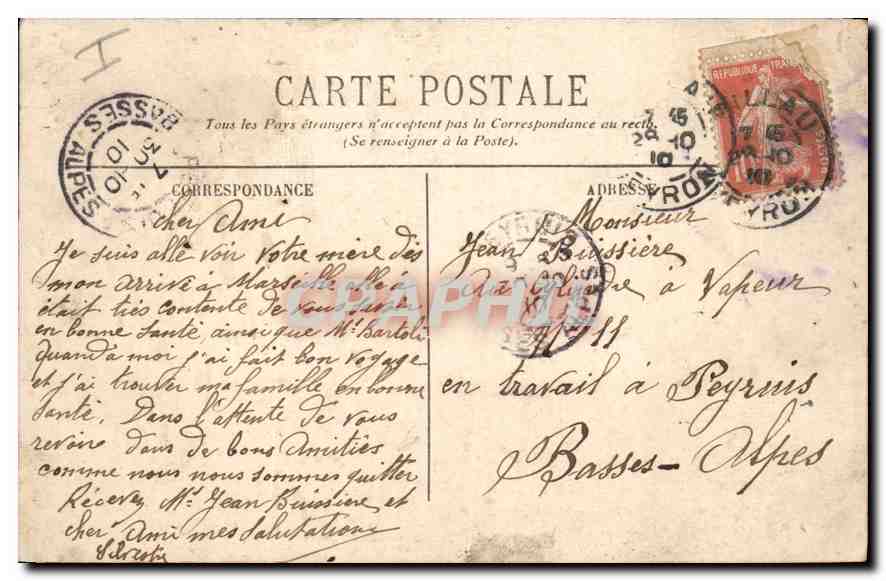 I
CARTE POSTALE
Tous les Pays étrangers n'acceptent pas la Correspondance au recto
(Se renseigner à la Poste).
CORRESPONDANCE
cher Ami
Je suis allé voir votre mère dès
mon arrivé à Marseille elle à
était tiés contente de vous savoir
en bonne santé, ainsi que Mr. Bartoli
quand à moi j'ai fait bon voyage
et j'ai trouver ma famille en bonne
santé. Dans l'attente de vous
revoir dans de bons Amitiés
comme nous nous sommes quitter
Récevez Mr. Jean Buissiere et
cher Ami mes Salutations
Silvestre
ADRESSE
Monsieur
Jean Buissière
à Vapeur
11
en travail à Peyruis
Basses-Alpes
REPUBLIQUE FRAN
MILLAU
17 45
28-10
10
AVEYRON
BASSES ALPES
CPAPHIL